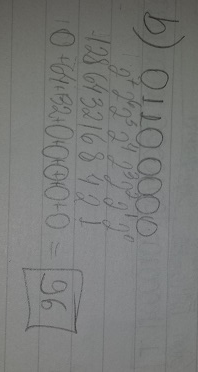 b) 01100000
2⁷ 2⁶ 2⁵ 2⁴ 2³ 2² 2¹ 2⁰
-128 64 32 16 8 4 2 1
0+64+32+0+0+0+0+0 = 96